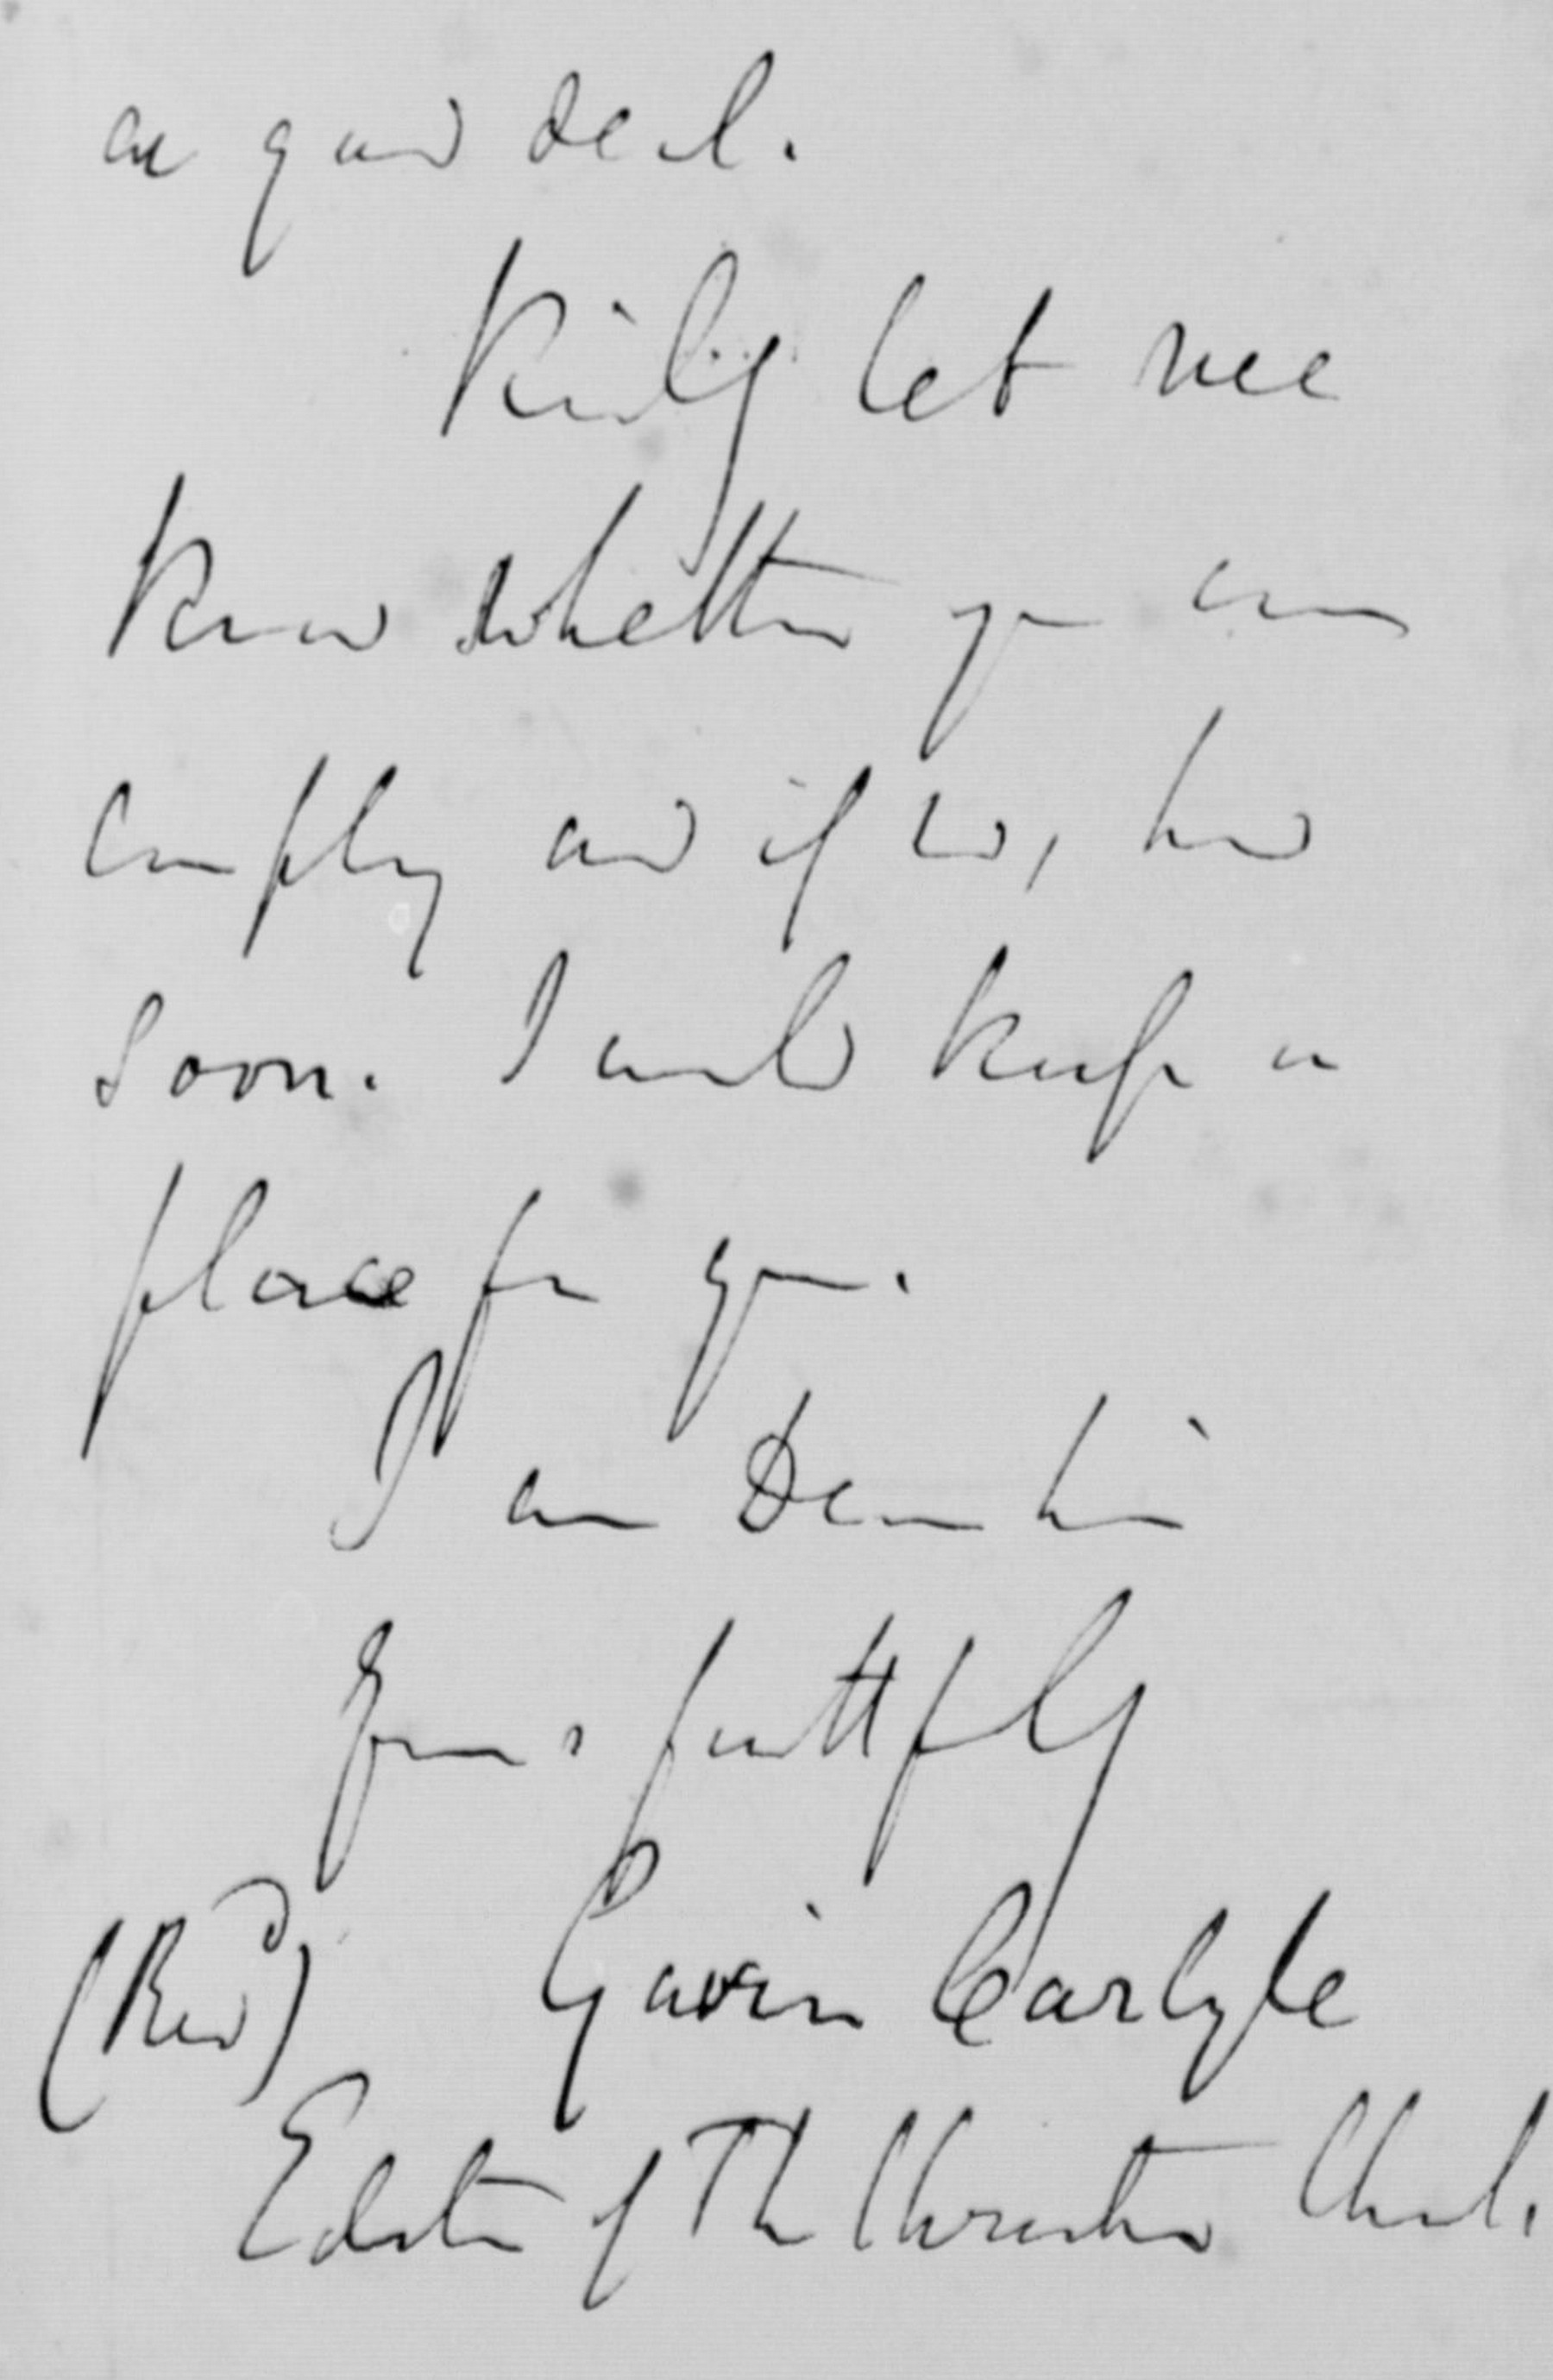 a good deal.
Kindly let me
know whether you can
comply and if so, how
soon. I would keep a
place for you.
I am Dear Sir
Yours faithfully
(Revd) Gavin Carlyle
Editor of The Christian Church